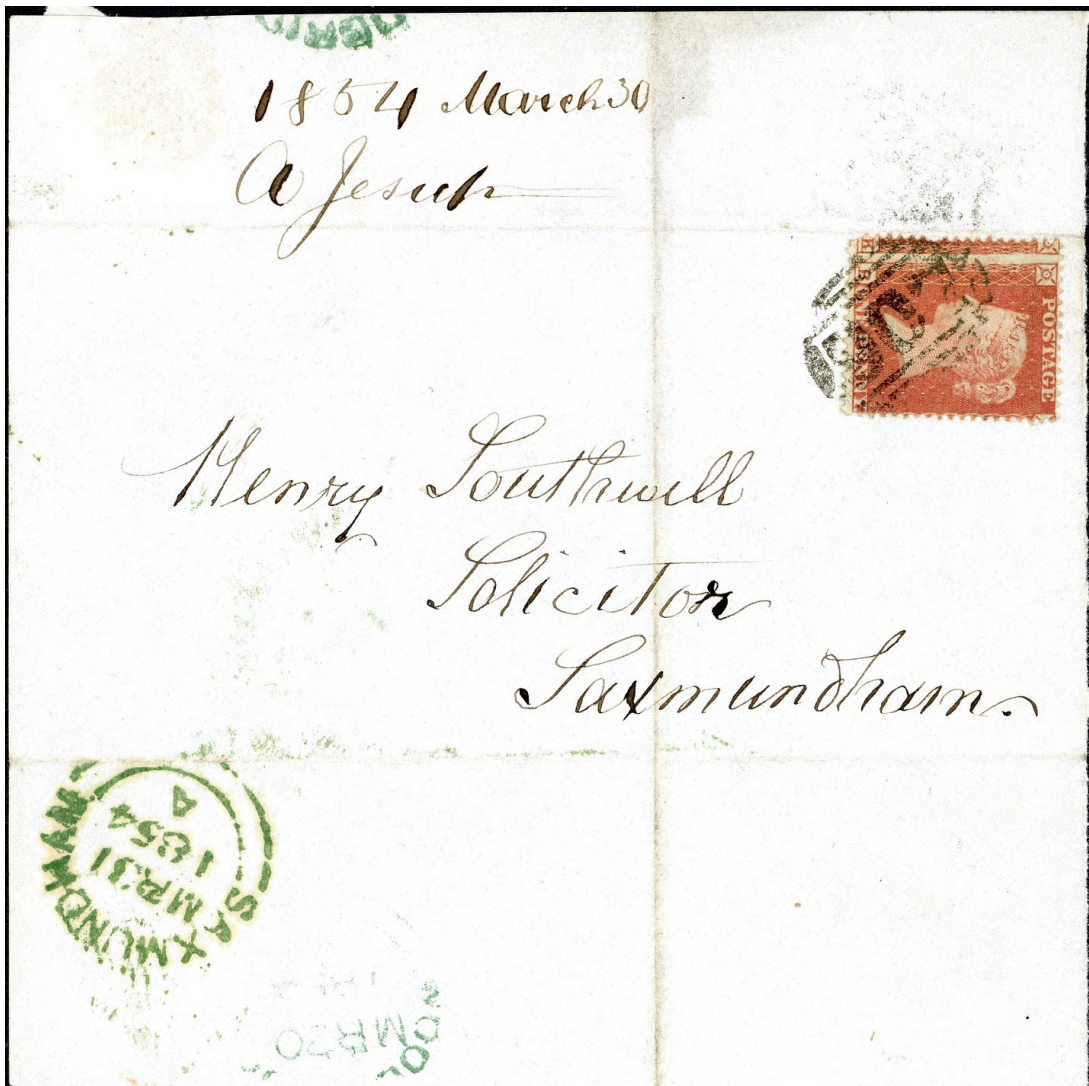 1854 March 30
A Jesup
POSTAGE
ONE PENNY
Henry Southwell
Solicitor
Saxmundham.
SAXMUNDHAM
A
1854
MR 31
MR 30